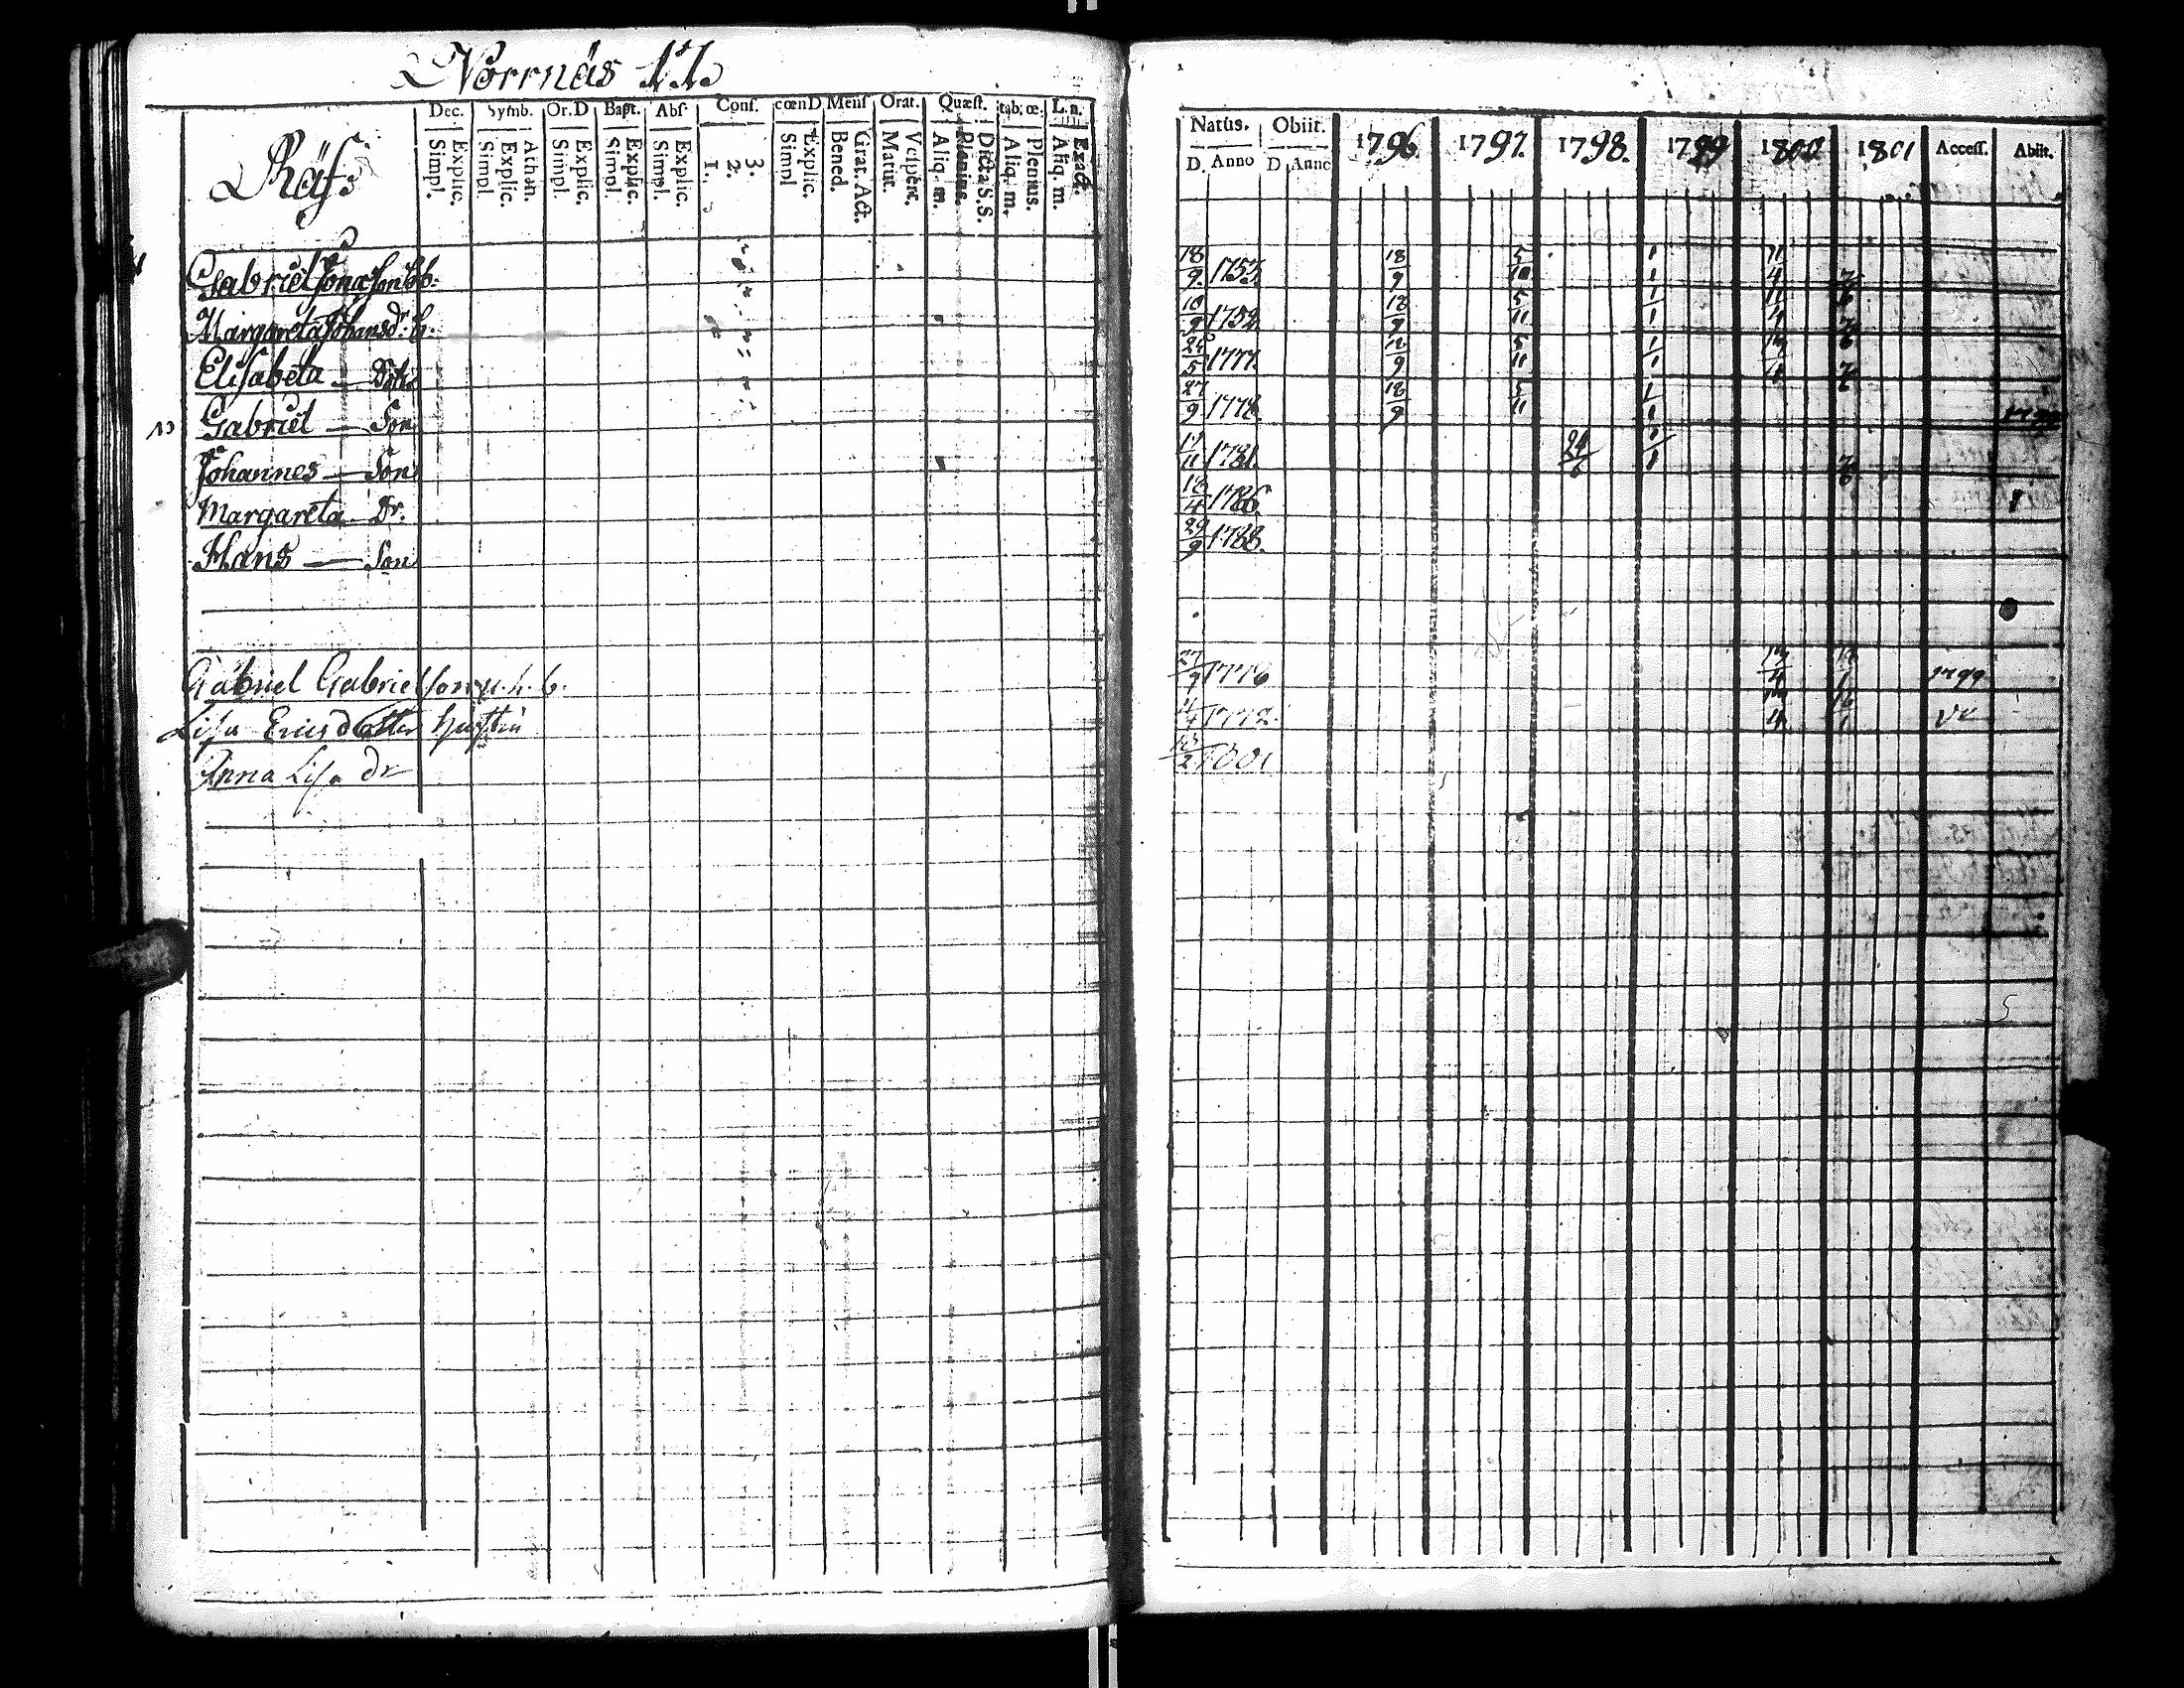 Norrnäs 17.
Dec. Symb. Or.D Bapt. Abs. Conf. cœnD Mens Orat. Quæst. tab.œ. L.n.
Simpl. Explic. Simpl. Explic. Athan. Simpl. Explic. Simpl. Explic. Simpl. Explic. 1. 2. 3. Simpl Explic. Bened. Grat. Act. Matut. Vespert. Aliq. m. Plenius. Dicta S.S. Aliq. m. Plenius. Aliq. m. Exact.
Räf:
Gabriel Jonasson bb:
Margareta Johansdr. h:
Elisabeta — Dotter
Gabriel — Son
Johannes — Son
Margareta Dr.
Hans — Son
Gabriel Gabrielsson u. h. b.
Lisa Ericsdotter hustru
Anna Lisa dr
Natus. Obiit. 1796. 1797. 1798. 1799 1800 1801 Access. Abiit.
D. Anno D Anno
18/9 1757 18/9 5/10 1/1 11/4 7/6
18/9 1752 18/9 5/11 1/1 11/4 7/6
5 1777. 18/9 5/11 1/1 7/6
27/9 1778 18/9 5/11 1/1 1799
11 1781. 24/6 1/1 7/6
18/4 1786.
29/9 1788.
27/9 1778 1799
4 1772.
2 1801